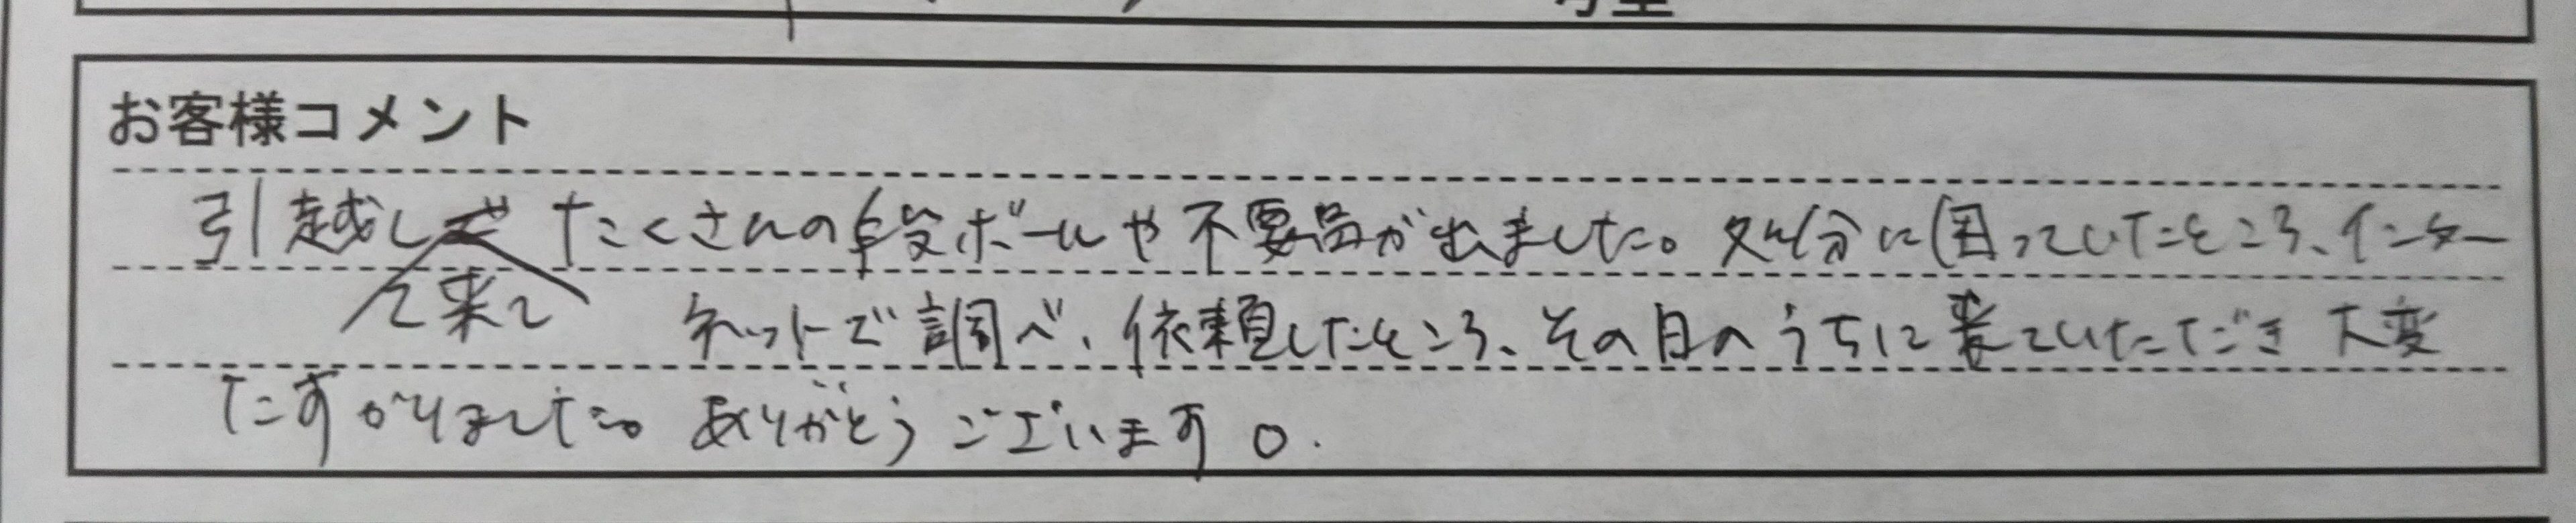 お客様コメント
引越して来てたくさんの段ボールや不要品が出ました。処分に困っていたところ、インター
ネットで調べ、依頼したところ、その日のうちに来ていただき大変
たすかりました。ありがとうございます。